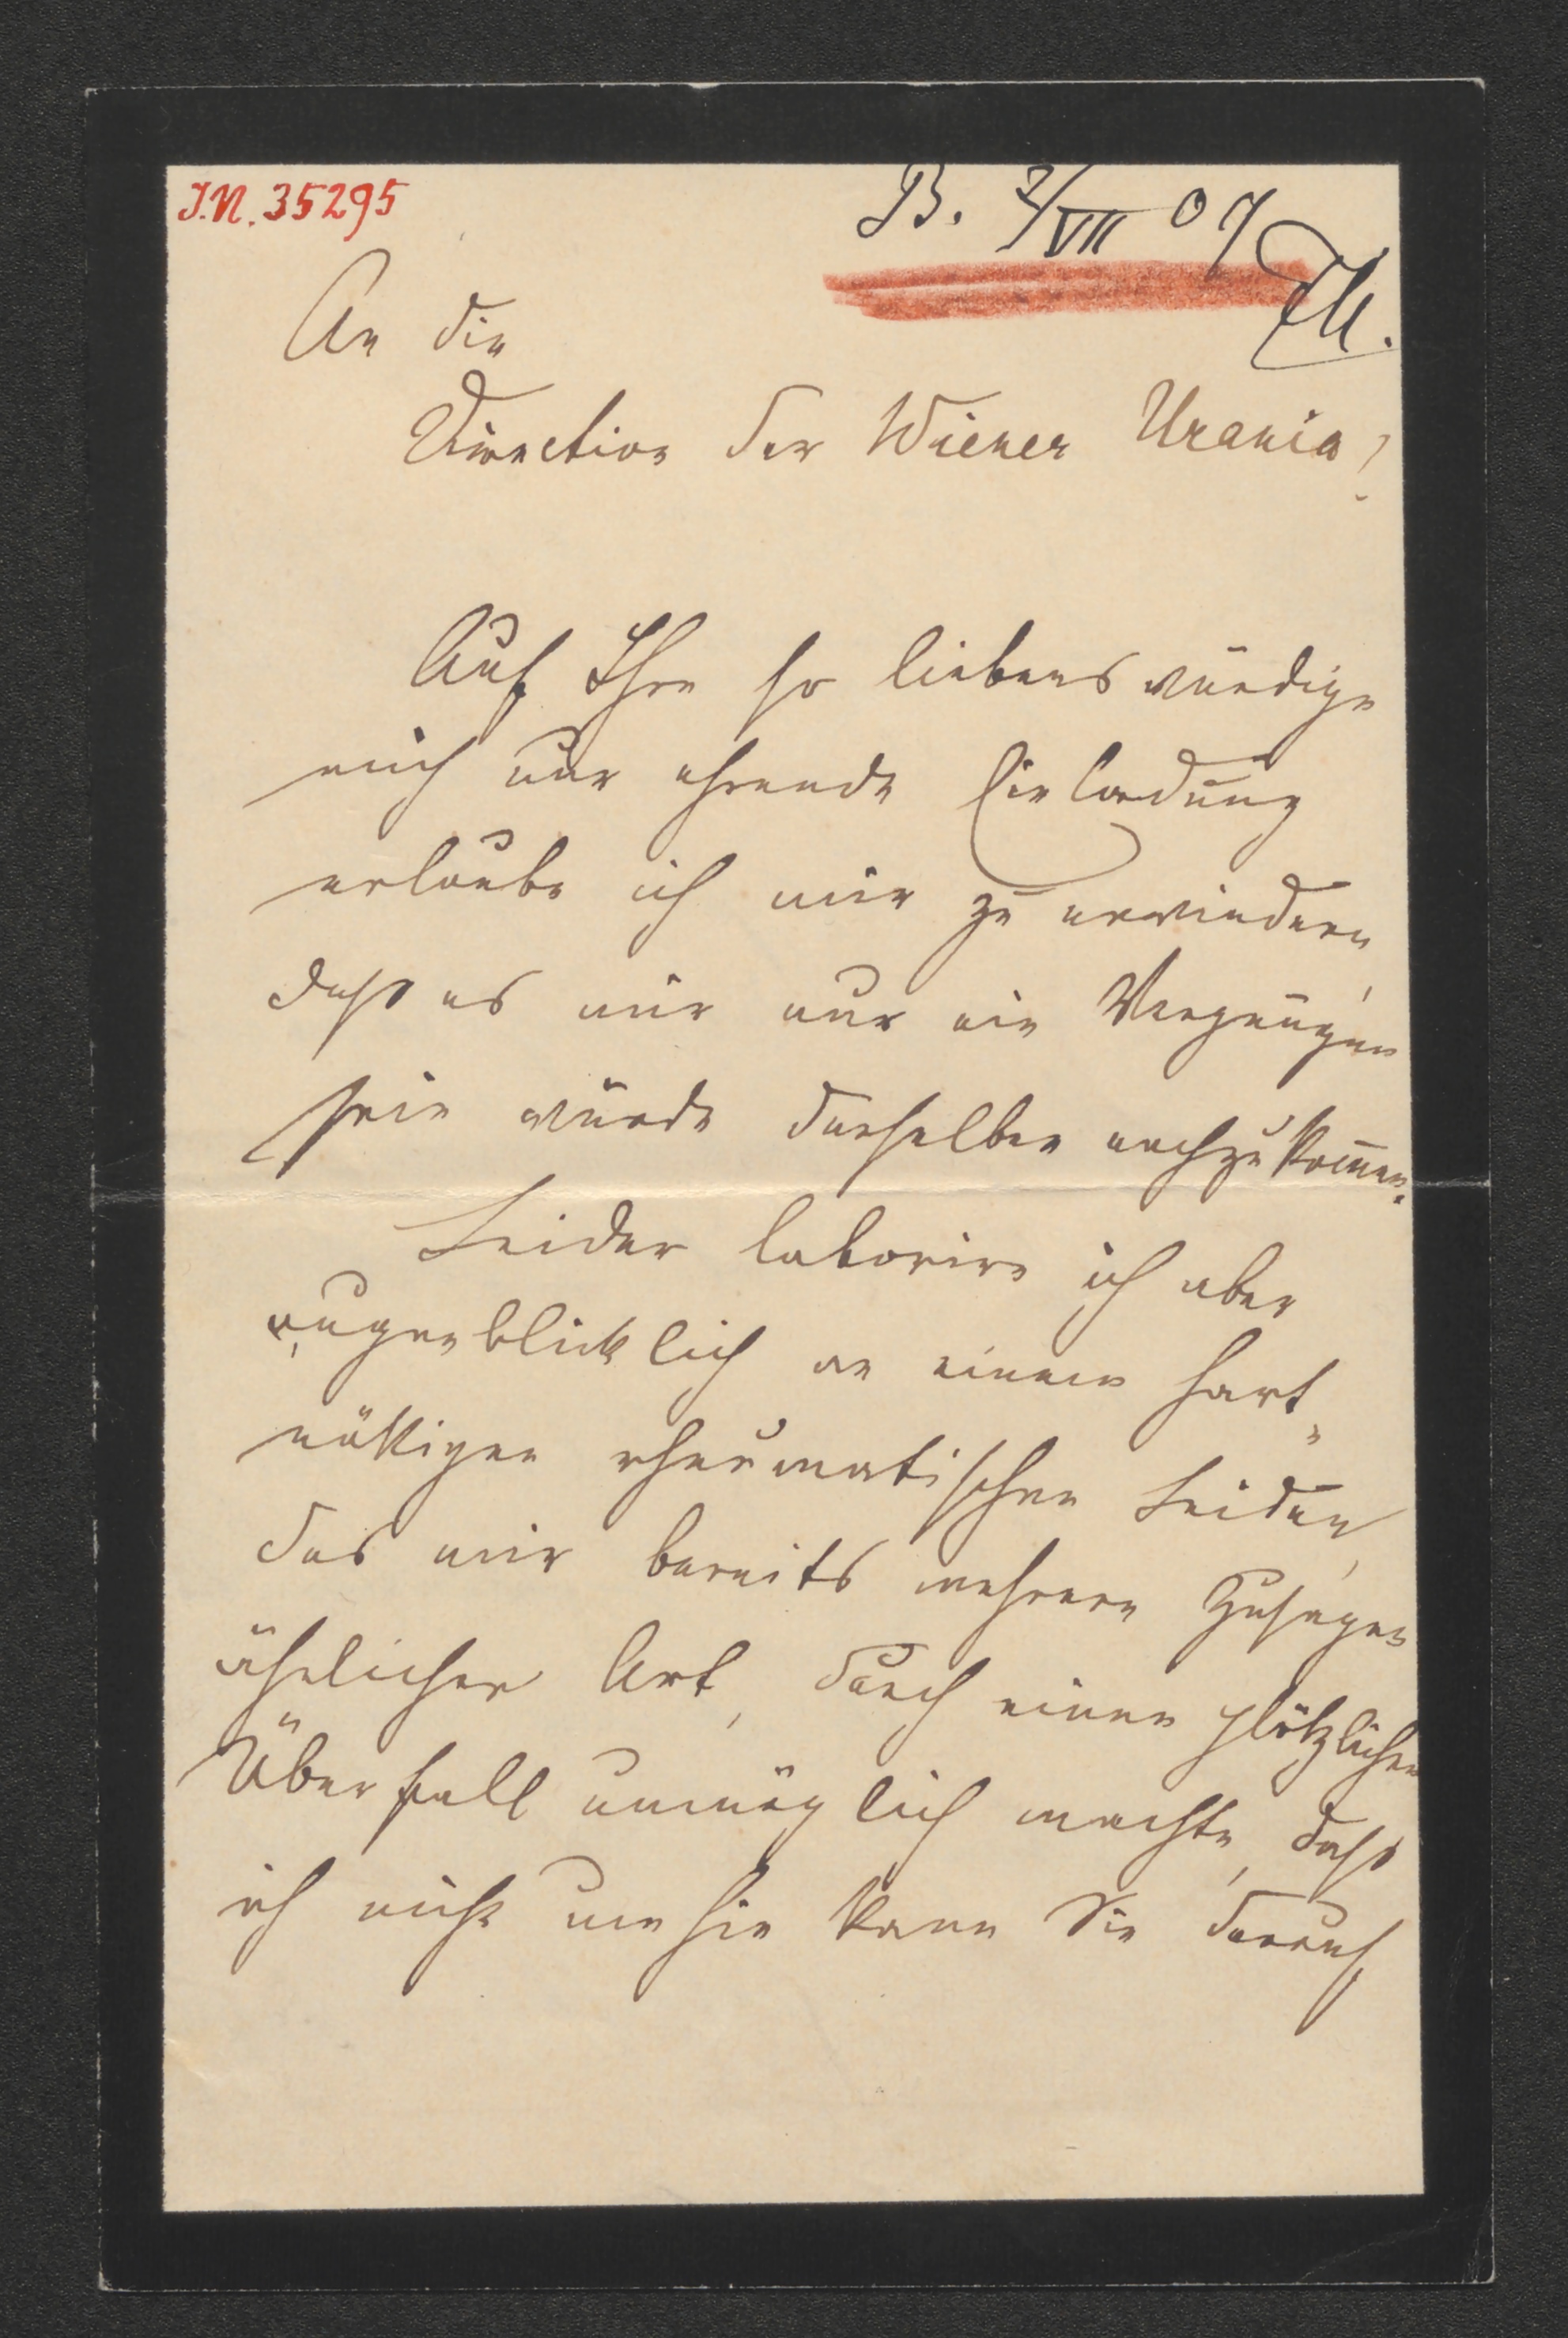 J.N. 35295
B. 7/VII 07
An die
Direction der Wiener Urania!
Auf Ihre so liebenswürdige
mich nur ehrende Einladung
erlaube ich mir zu erwiedern,
dass es mir nur ein Vergnügen
sein würde derselben nachzukom̅en.
Leider laborire ich aber
augenblicklich an einem hart„
näckigen rheumatischen Leiden,
das mir bereits mehrere Zusagen
ähnlicher Art, durch einen plötzlichen
Überfall unmöglich machte, dass
ich nicht umhin kann Sie darauf